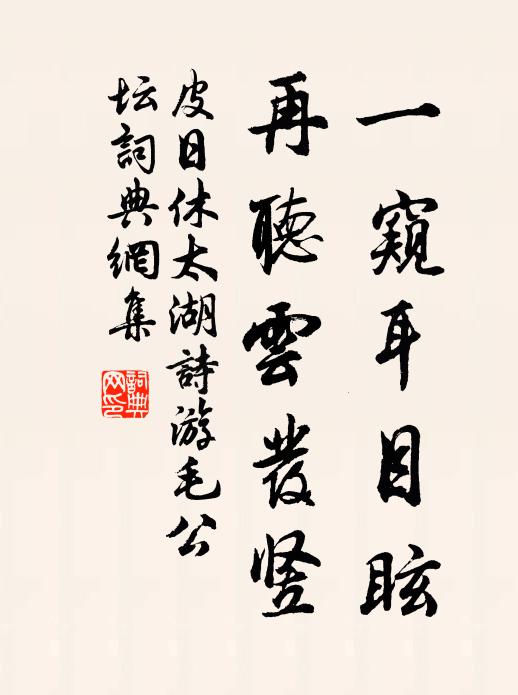 一窺耳目眩
再聽雲發竪
皮日休太湖詩游毛公
坛詞典網集
詞典
网印